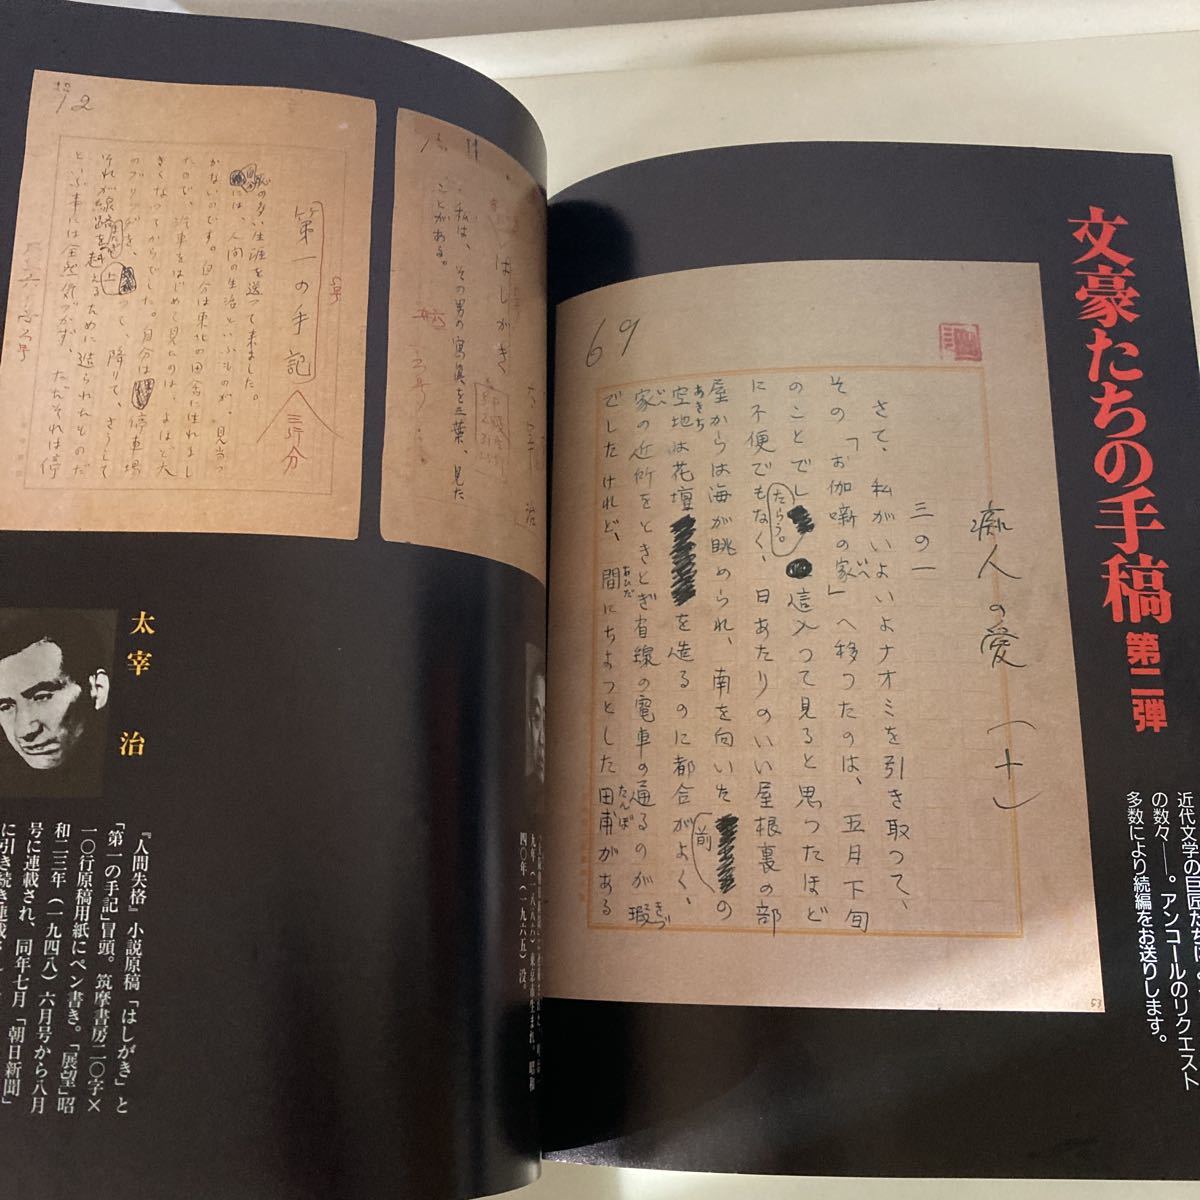 文豪たちの手稿 第二弾
の数々―。アンコールのリクエスト
多数により続編をお送りします。
69
痴人の愛 (十)
三の一
さて、私がいよいよナオミを引き取つて、
その「お伽噺の家」へ移つたのは、五月下旬
のことでしたらう。這入つて見ると思つたほど
に不便でもなく、日あたりのいい屋根裏の部
屋からは海が眺められ、南を向いた前の
空地は花壇を造るのに都合がよく、
家の近所をときどき省線の電車の通るのが瑕
でしたけれど、間にちよつとした田甫がある
53
四〇年(一九六五)没。
はしがき
私は、その男の寫眞を三葉、見た
ことがある。
12
第一の手記
三行分
恥の多い生涯を送つて来ました。
自分には、人間の生活といふものが、見当つ
かないのです。自分は東北の田舎に生れまし
たので、汽車をはじめて見たのは、よほど大
きくなつてからでした。自分は停車場
のブリッヂを、上つて、降りて、さうして
それが線路をまたぎ越えるために造られたものだ
といふ事には全然気づかず、ただそれは停
太宰 治
『人間失格』小説原稿「はしがき」と
「第一の手記」冒頭。筑摩書房二〇字×
一〇行原稿用紙にペン書き。「展望」昭
和二三年(一九四八)六月号から八月
号に連載され、同年七月「朝日新聞」